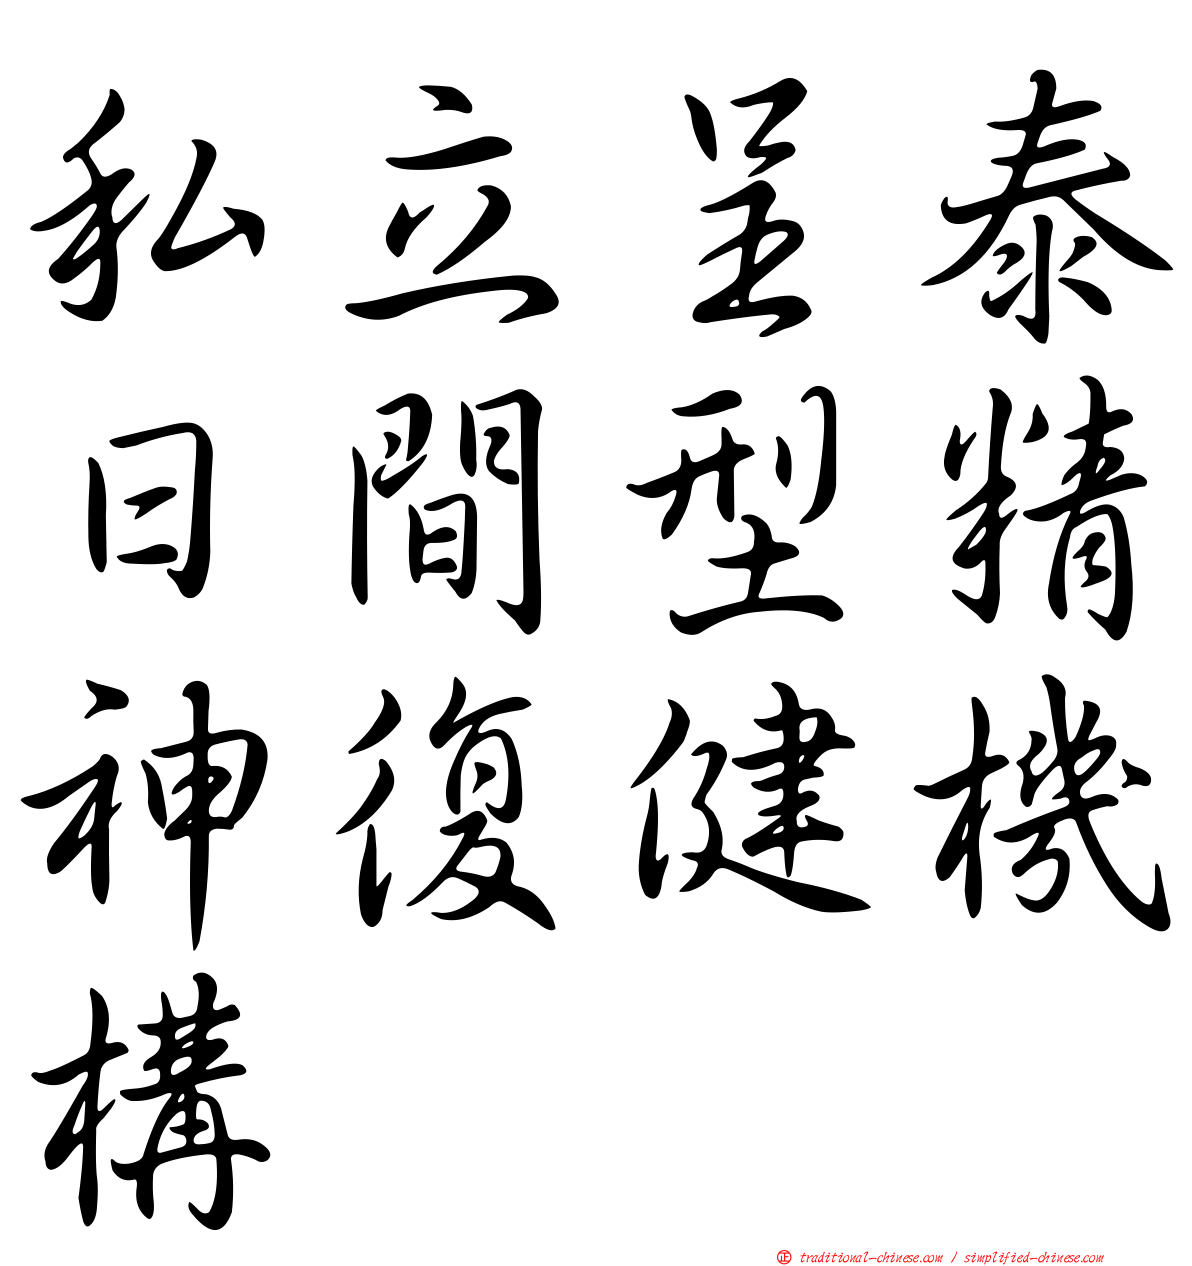 私立呈泰
日間型精
神復健機
構
正 traditional-chinese.com / simplified-chinese.com